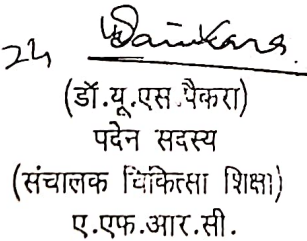 24
(डॉ.यू.एस.पैकरा)
पदेन सदस्य
(संचालक चिकित्सा शिक्षा)
ए.एफ.आर.सी.